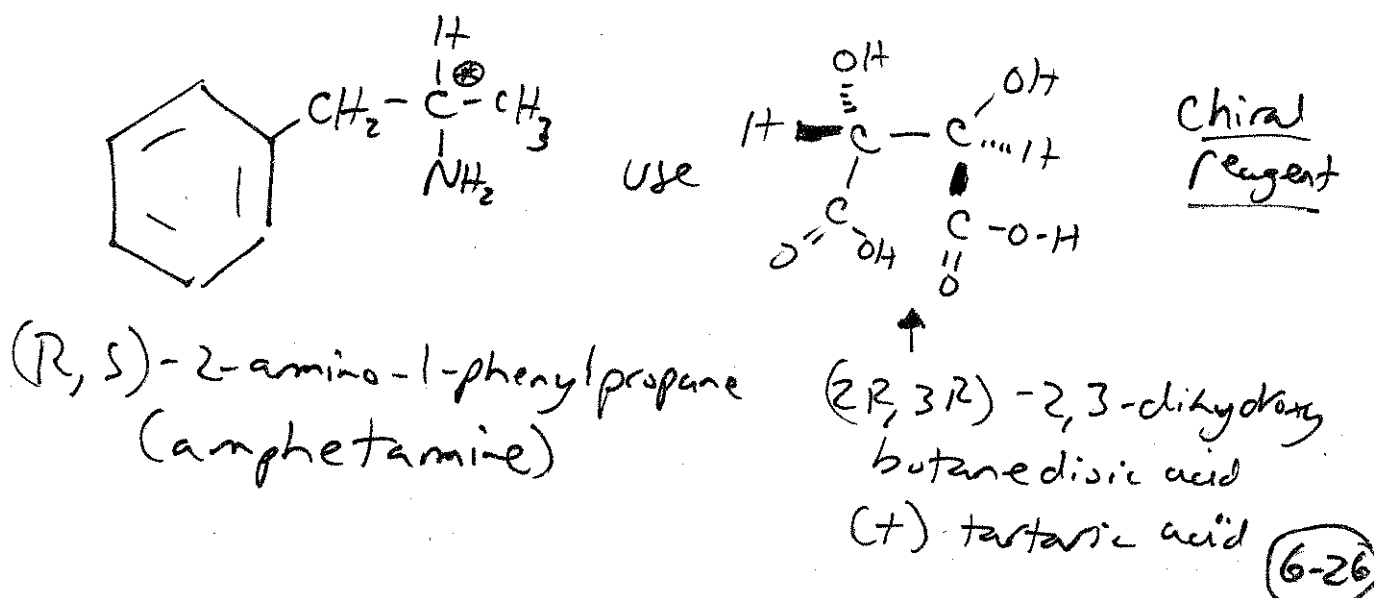 H
CH2-C*-CH3
NH2
use
OH
OH
H C-C H
C
O OH
C-O-H
O
Chiral
reagent
(R,S)-2-amino-1-phenylpropane
(amphetamine)
(2R,3R)-2,3-dihydroxy
butanedioic acid
(+) tartaric acid
6-26